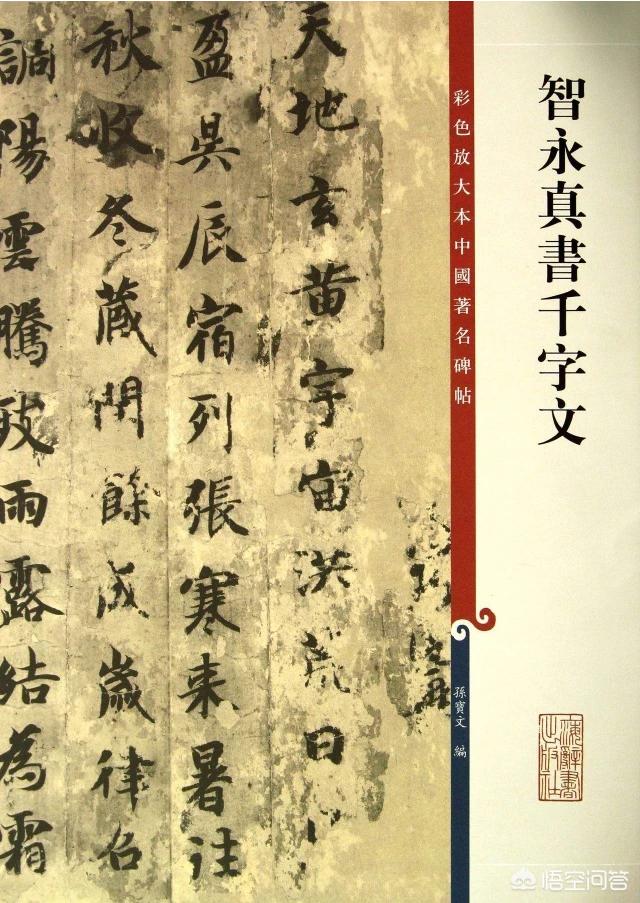 智永真書千字文
彩色放大本中國著名碑帖
孫寶文 編
天地玄黃宇宙洪荒日
盈昃辰宿列張寒来暑往
秋收冬藏閏餘成歲律召
調陽雲騰致雨露結為霜
悟空问答